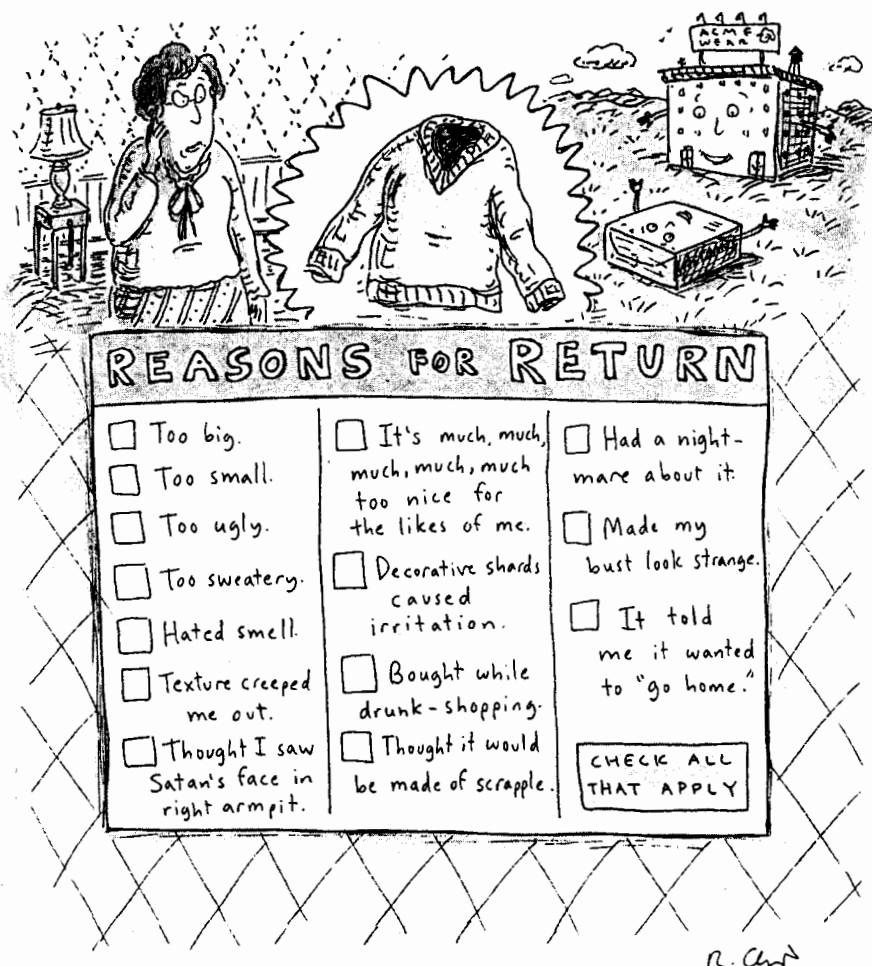 ACME
WEAR
REASONS FOR RETURN
Too big.
Too small.
Too ugly.
Too sweatery.
Hated smell.
Texture creeped
me out.
Thought I saw
Satan's face in
right armpit.
It's much, much,
much, much, much
too nice for
the likes of me.
Decorative shards
caused
irritation.
Bought while
drunk-shopping.
Thought it would
be made of scrapple.
Had a night-
mare about it.
Made my
bust look strange.
It told
me it wanted
to "go home."
CHECK ALL
THAT APPLY